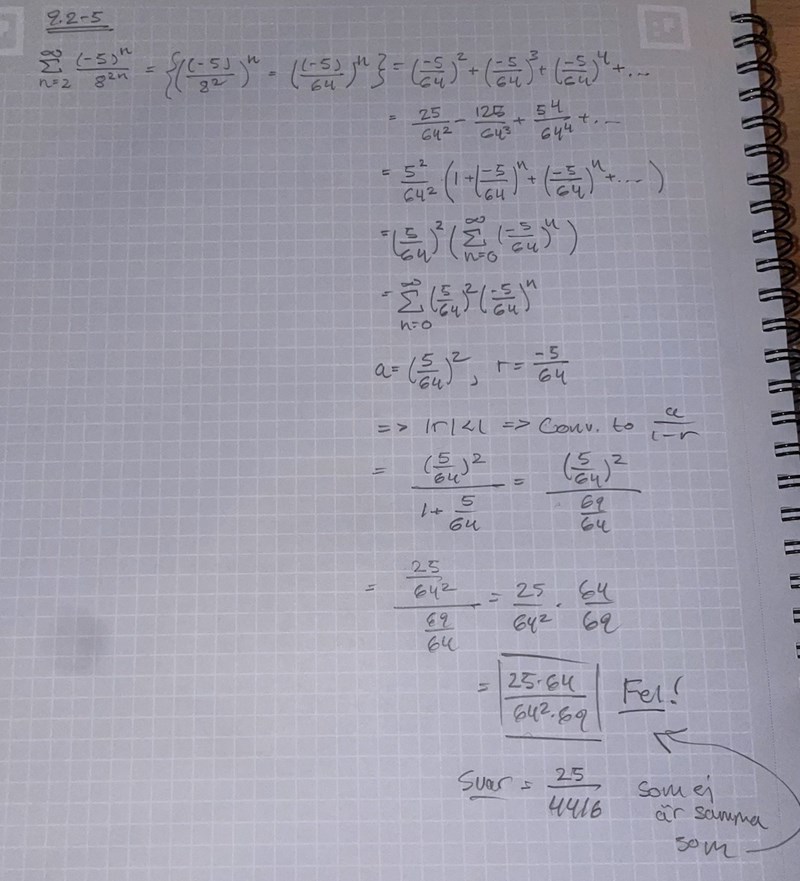 9.2-5
∑_{n=2}^{∞} (-5)^n / 8^{2n} = { ((-5)/8^2)^n = ((-5)/64)^n } = (-5/64)^2 + (-5/64)^3 + (-5/64)^4 + ...
= 25/64^2 - 125/64^3 + 5^4/64^4 + ...
= 5^2/64^2 (1 + (-5/64)^n + (-5/64)^n + ... )
= (5/64)^2 ( ∑_{n=0}^{∞} (-5/64)^n )
= ∑_{n=0}^{∞} (5/64)^2 (-5/64)^n
a = (5/64)^2, r = -5/64
=> |r| < 1 => Conv. to a/(1-r)
= (5/64)^2 / (1 + 5/64) = (5/64)^2 / (69/64)
= (25/64^2) / (69/64) = 25/64^2 · 64/69
= 25·64 / 64^2·69 Fel!
Svar = 25/4416 som ej
är samma
som